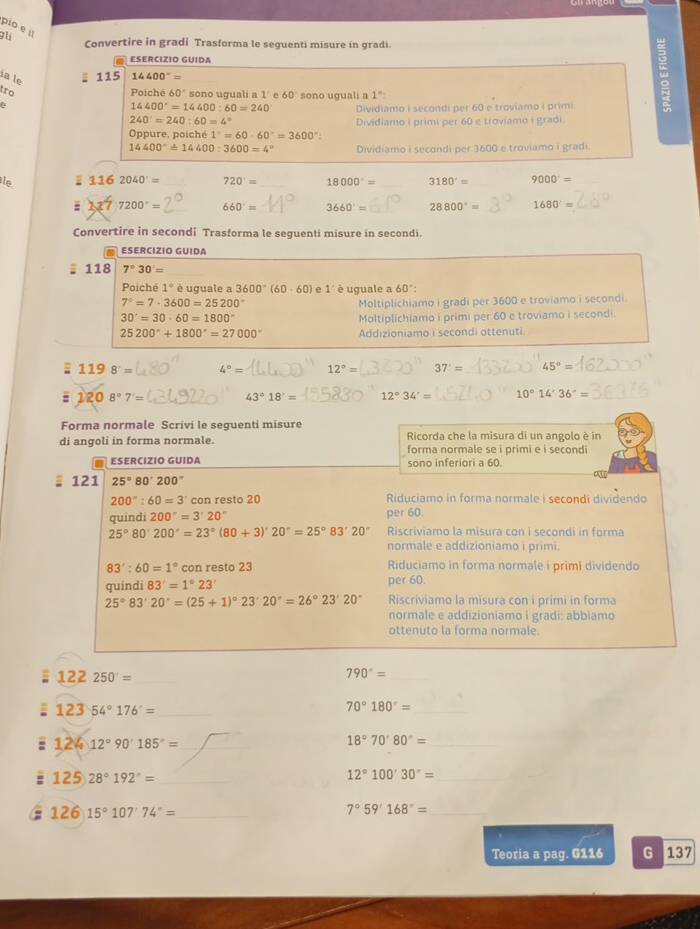 Gli angoli
pio e il
gli
ia le
tro
e
le
SPAZIO E FIGURE
Convertire in gradi Trasforma le seguenti misure in gradi.
ESERCIZIO GUIDA
115 14 400″ =
Poiché 60″ sono uguali a 1′ e 60′ sono uguali a 1°:
14 400″ = 14 400 : 60 = 240′ Dividiamo i secondi per 60 e troviamo i primi.
240′ = 240 : 60 = 4° Dividiamo i primi per 60 e troviamo i gradi.
Oppure, poiché 1° = 60 · 60″ = 3600″:
14 400″ = 14 400 : 3600 = 4° Dividiamo i secondi per 3600 e troviamo i gradi.
116 2040′ = 720′ = 18 000″ = 3180′ = 9000′ =
117 7200″ = 2° 660′ = 11° 3660′ = 61° 28 800″ = 8° 1680′ = 28°
Convertire in secondi Trasforma le seguenti misure in secondi.
ESERCIZIO GUIDA
118 7° 30′ =
Poiché 1° è uguale a 3600″ (60 · 60) e 1′ è uguale a 60″:
7° = 7 · 3600 = 25 200″ Moltiplichiamo i gradi per 3600 e troviamo i secondi.
30′ = 30 · 60 = 1800″ Moltiplichiamo i primi per 60 e troviamo i secondi.
25 200″ + 1800″ = 27 000″ Addizioniamo i secondi ottenuti.
119 8′ = 480″ 4° = 12° = 37′ = 45° =
120 8° 7′ = 43° 18′ = 155880″ 12° 34′ = 10° 14′ 36″ =
Forma normale Scrivi le seguenti misure
di angoli in forma normale.
Ricorda che la misura di un angolo è in
forma normale se i primi e i secondi
sono inferiori a 60.
ESERCIZIO GUIDA
121 25° 80′ 200″
200″ : 60 = 3′ con resto 20 Riduciamo in forma normale i secondi dividendo
quindi 200″ = 3′ 20″ per 60.
25° 80′ 200″ = 23° (80 + 3)′ 20″ = 25° 83′ 20″ Riscriviamo la misura con i secondi in forma
normale e addizioniamo i primi.
83′ : 60 = 1° con resto 23 Riduciamo in forma normale i primi dividendo
quindi 83′ = 1° 23′ per 60.
25° 83′ 20″ = (25 + 1)° 23′ 20″ = 26° 23′ 20″ Riscriviamo la misura con i primi in forma
normale e addizioniamo i gradi: abbiamo
ottenuto la forma normale.
122 250′ = 790″ =
123 54° 176′ = 70° 180″ =
124 12° 90′ 185″ = 18° 70′ 80″ =
125 28° 192″ = 12° 100′ 30″ =
126 15° 107′ 74″ = 7° 59′ 168″ =
Teoria a pag. G116
G 137